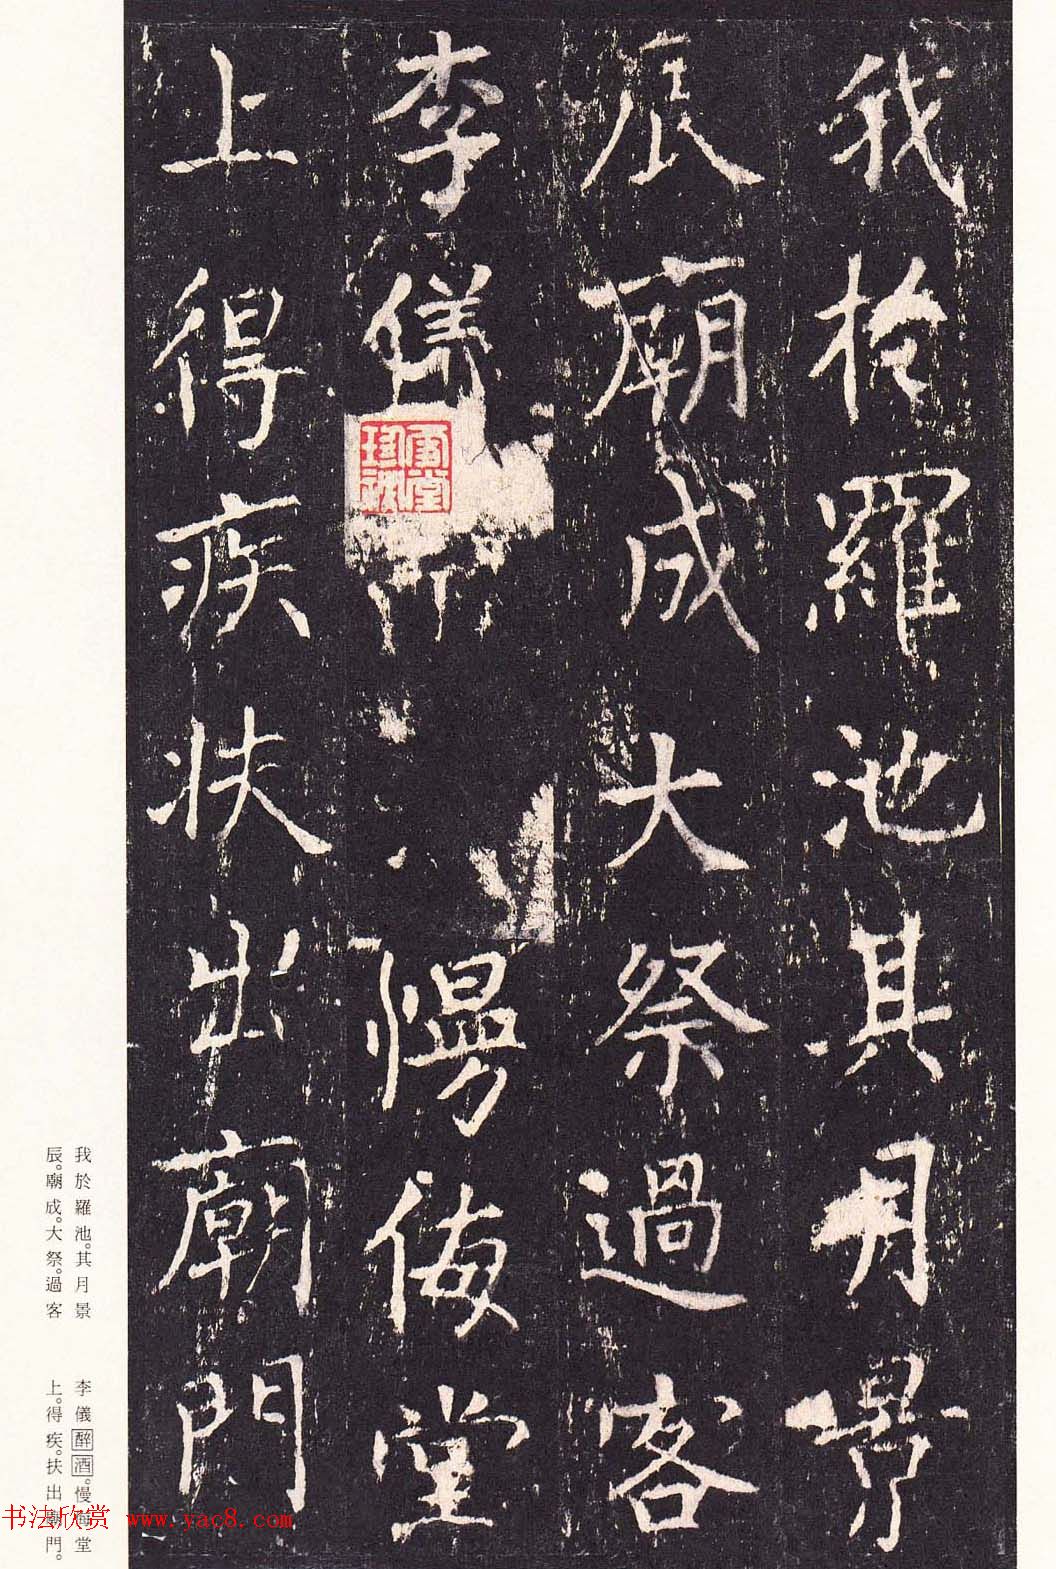 我於羅池其月景
辰廟成大祭過客
李儀慢侮堂
上得疾扶出廟門
我於羅池。其月景
辰。廟成。大祭。過客
李儀醉酒。慢侮堂
上。得疾。扶出廟門。
书法欣赏 www.yac8.com